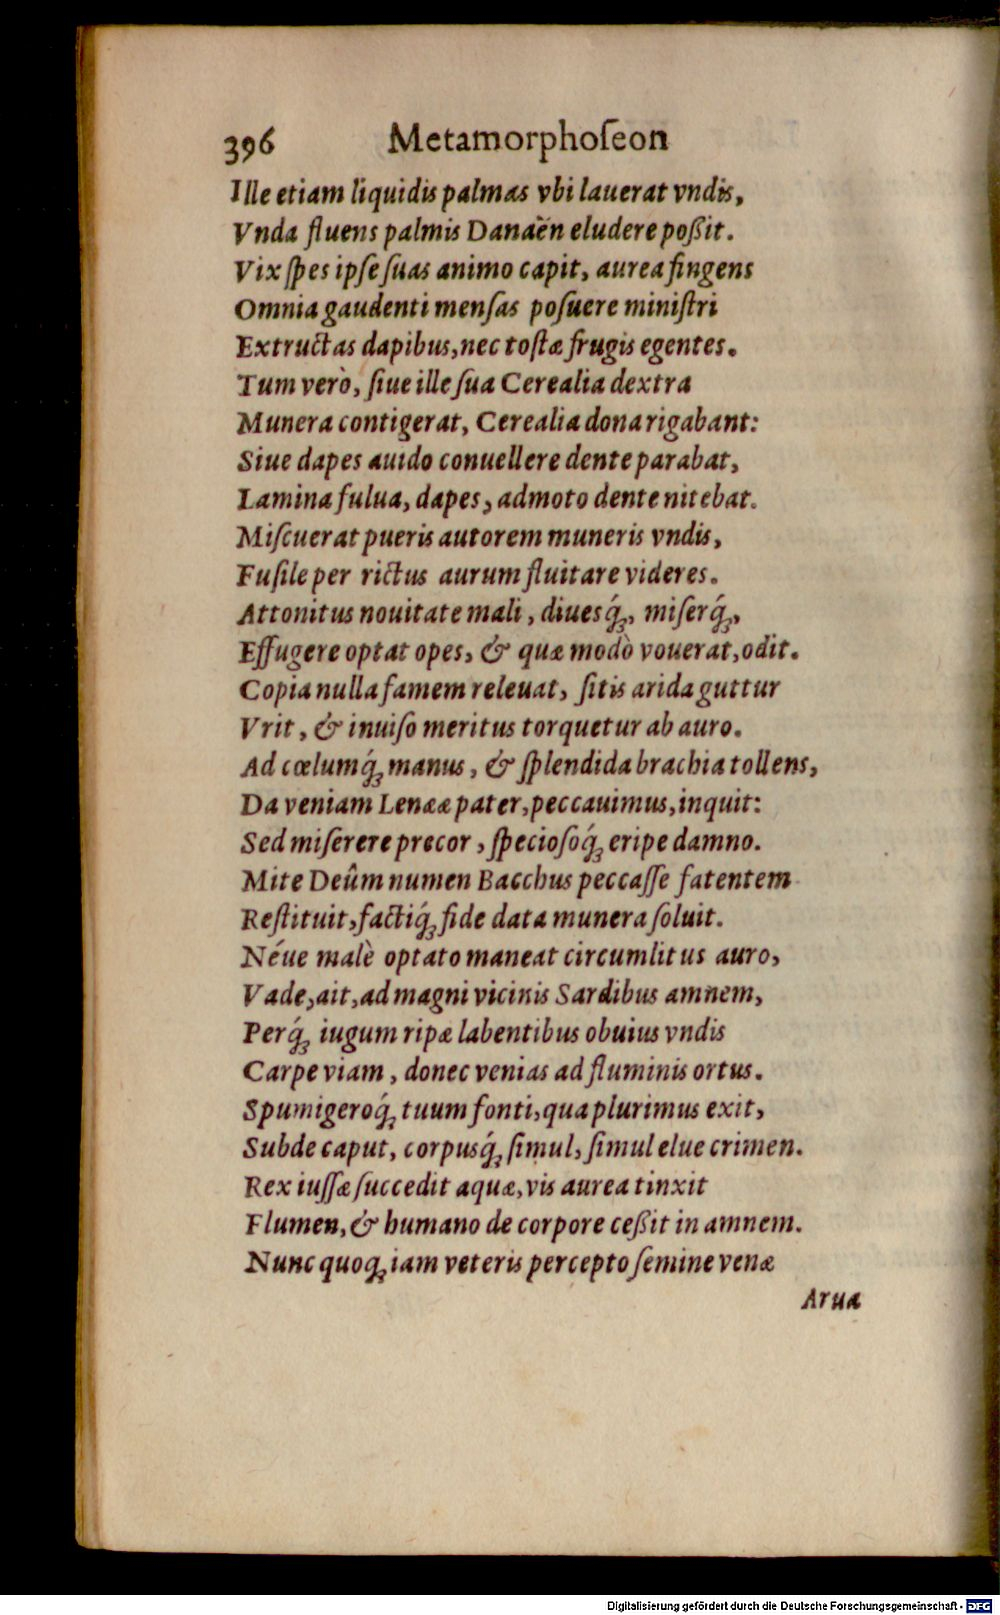 396 Metamorphoſeon
Ille etiam liquidis palmas vbi lauerat vndis,
Vnda fluens palmis Danaën eludere poßit.
Vix ſpes ipſe ſuas animo capit, aurea fingens
Omnia gaudenti menſas poſuere miniſtri
Extructas dapibus, nec toſtæ frugis egentes.
Tum verò, ſiue ille ſua Cerealia dextra
Munera contigerat, Cerealia dona rigabant:
Siue dapes auido conuellere dente parabat,
Lamina fulua, dapes, admoto dente nitebat.
Miſcuerat pueris autorem muneris vndis,
Fuſile per rictus aurum fluitare videres.
Attonitus nouitate mali, diuesq́ꝫ, miſerq́ꝫ,
Effugere optat opes, & quæ modò vouerat, odit.
Copia nulla famem releuat, ſitis arida guttur
Vrit, & inuiſo meritus torquetur ab auro.
Ad cœlumq́ꝫ manus, & ſplendida brachia tollens,
Da veniam Lenæe pater, peccauimus, inquit:
Sed miſerere precor, ſpecioſoq́ꝫ eripe damno.
Mite Deûm numen Bacchus peccaſſe fatentem
Reſtituit, factiq́ꝫ fide data munera ſoluit.
Néue malè optato maneat circumlitus auro,
Vade, ait, ad magni vicinis Sardibus amnem,
Perq́ꝫ iugum ripæ labentibus obuius vndis
Carpe viam, donec venias ad fluminis ortus.
Spumigeroq́ꝫ tuum fonti, qua plurimus exit,
Subde caput, corpusq́ꝫ ſimul, ſimul elue crimen.
Rex iuſſæ ſuccedit aquæ, vis aurea tinxit
Flumen, & humano de corpore ceßit in amnem.
Nunc quoqꝫ iam veteris percepto ſemine venæ
Arua
Digitalisierung gefördert durch die Deutsche Forschungsgemeinschaft - DFG